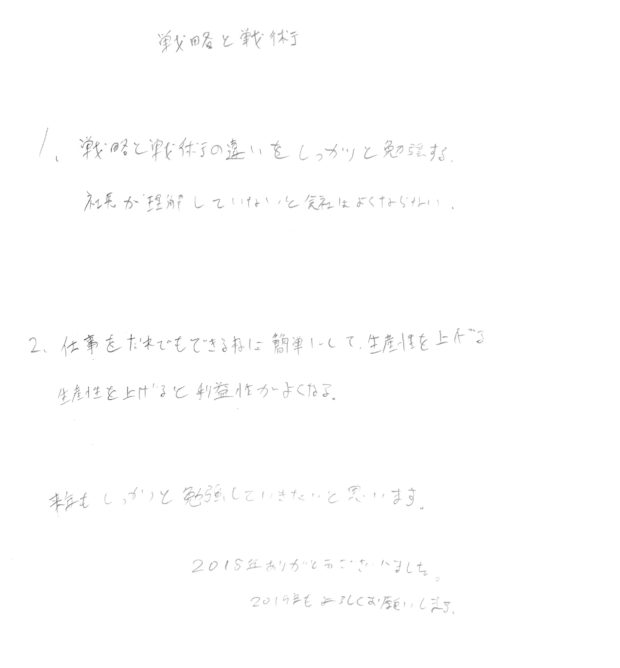 戦略と戦術
1. 戦略と戦術の違いをしっかりと勉強する。
社長が理解していないと会社はよくならない。
2. 仕事をだれでもできる様に簡単にして、生産性を上げる
生産性を上げると利益性がよくなる。
来年もしっかりと勉強していきたいと思います。
2018年ありがとうございました。
2019年もよろしくお願いします。